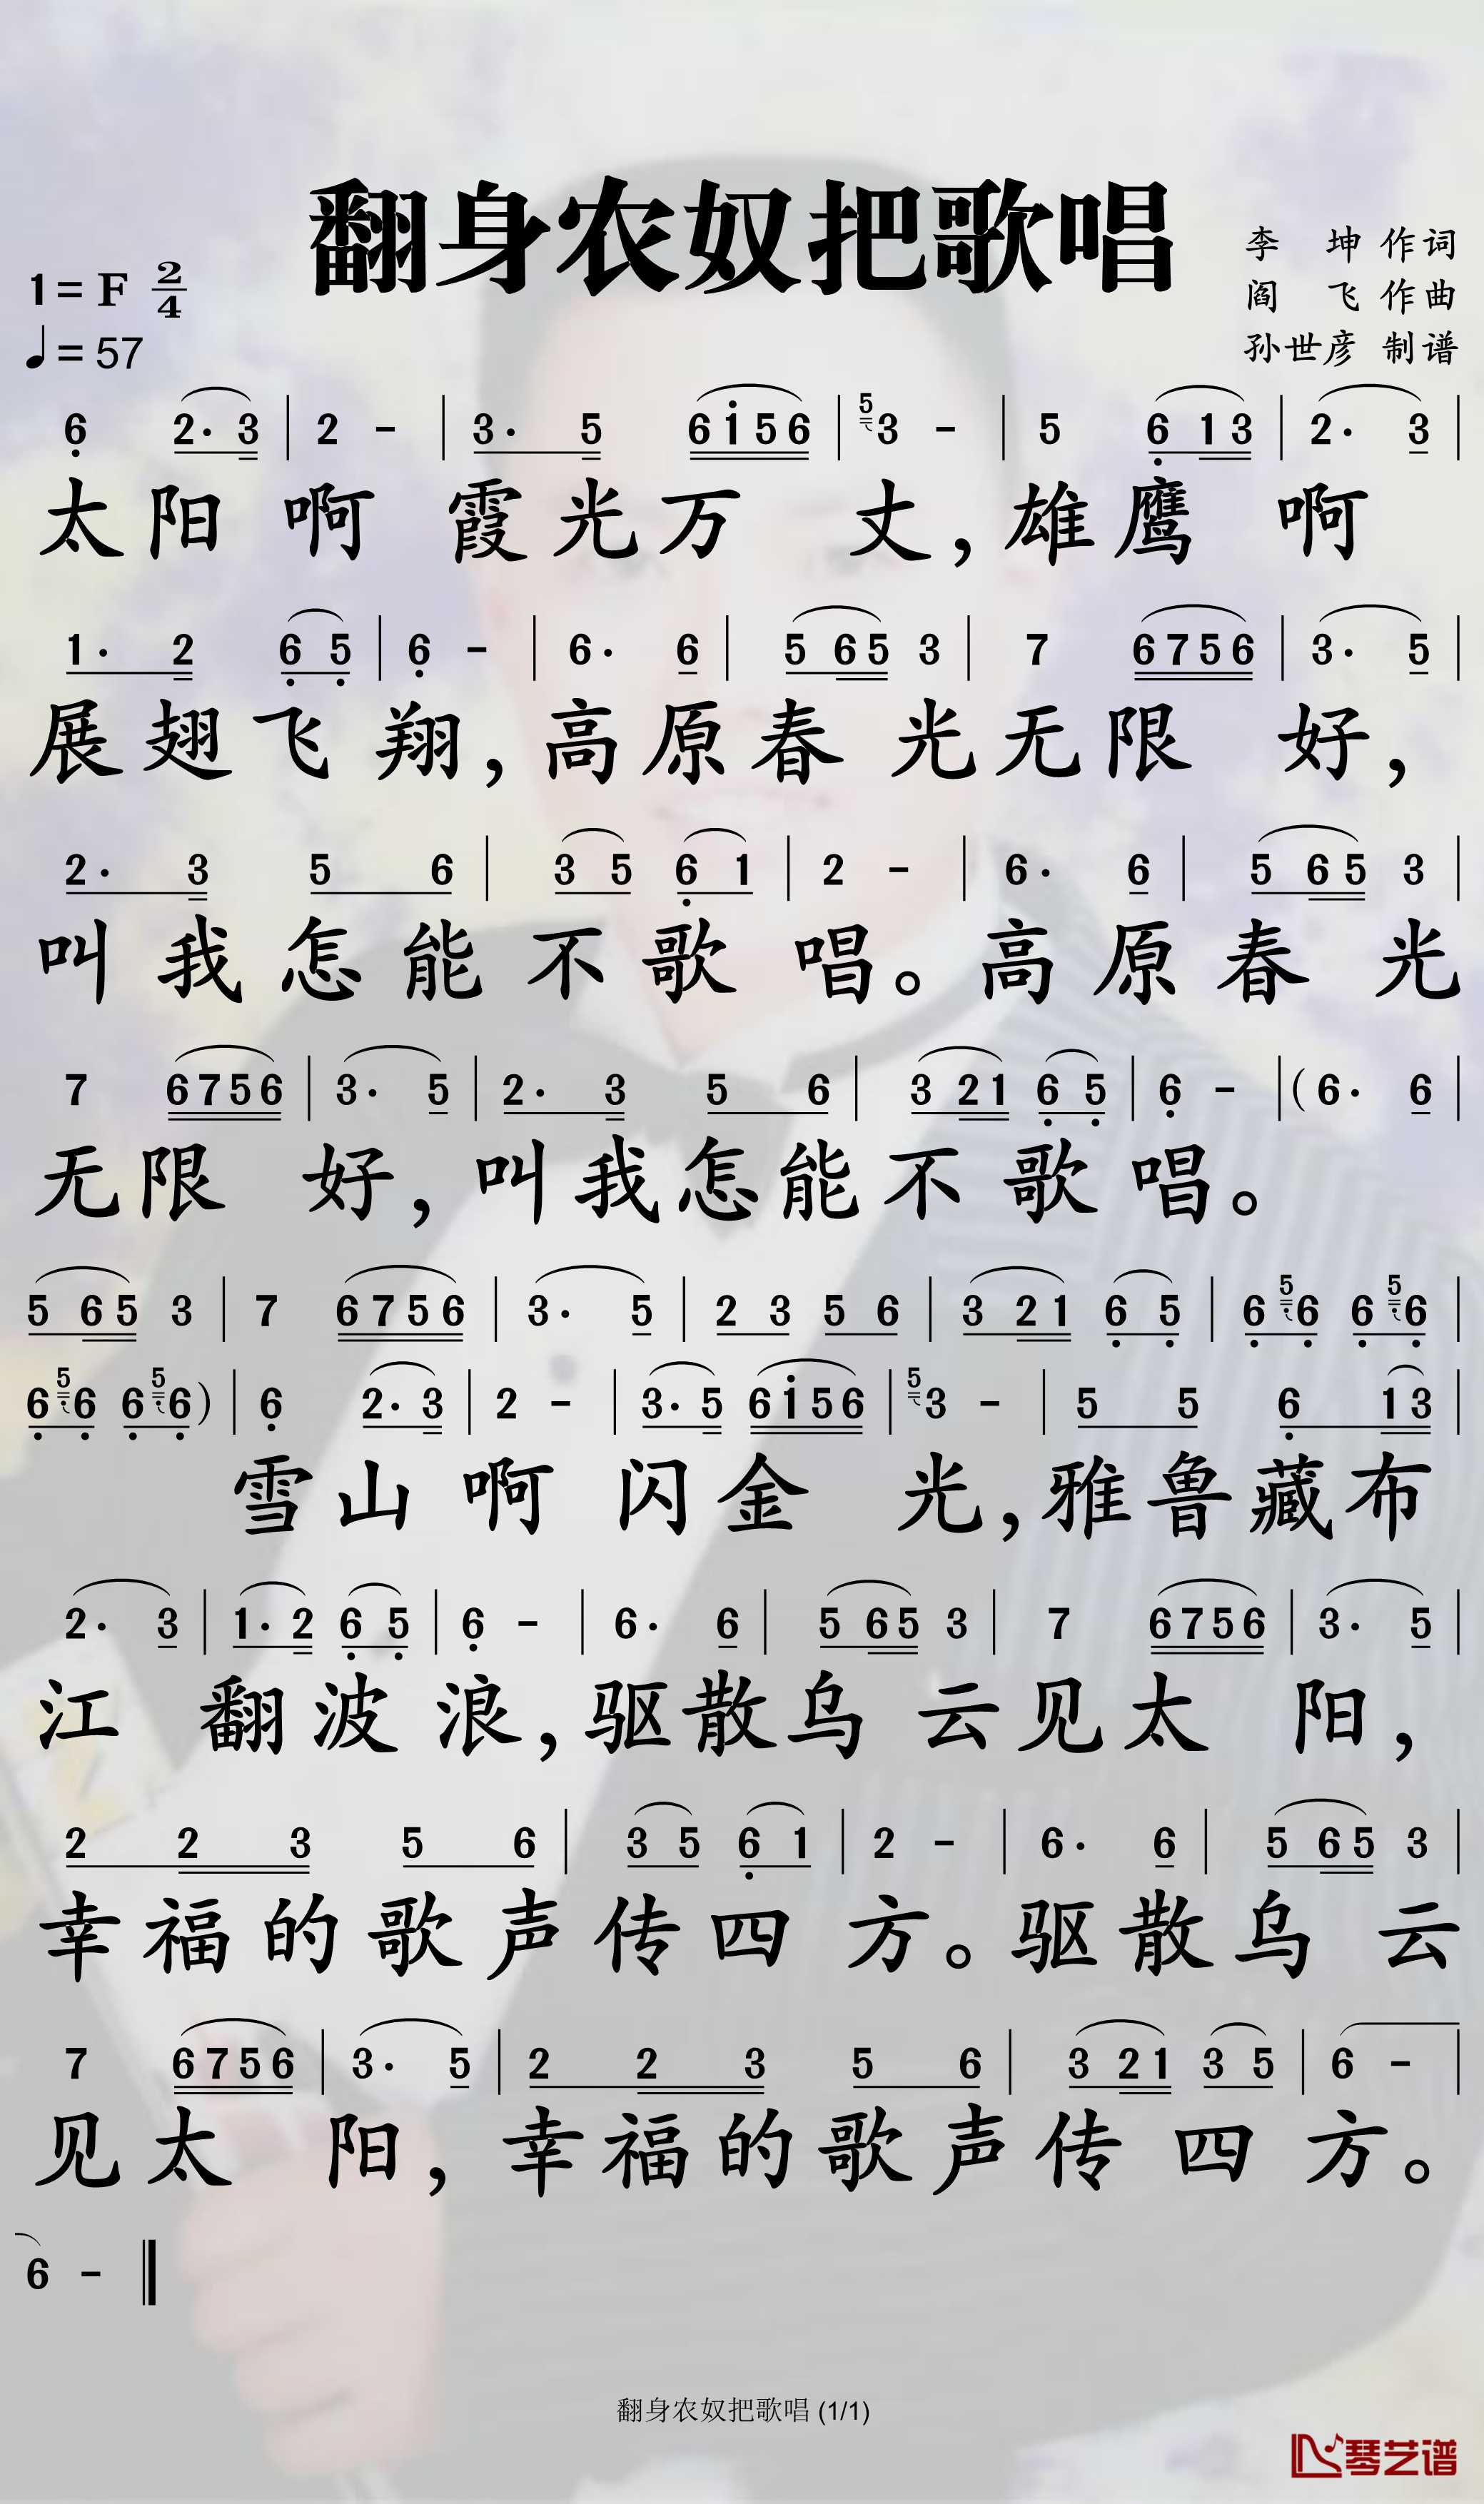 翻身农奴把歌唱
李 坤 作词
1=F 2/4
阎 飞 作曲
♩=57
孙世彦 制谱
6̣ 2·3 | 2 - | 3· 5 6i̇56 | ⁵3 - | 5 6̣13 | 2· 3 |
太阳啊霞光万丈,雄鹰啊
1· 2 6̣5̣ | 6̣ - | 6· 6 | 565 3 | 7 6756 | 3· 5 |
展翅飞翔,高原春光无限好,
2· 3 5 6 | 3 5 6̣ 1 | 2 - | 6· 6 | 5 65 3 |
叫我怎能不歌唱。高原春光
7 6756 | 3· 5 | 2· 3 5 6 | 3 21 6̣ 5̣ | 6̣ - | (6· 6 |
无限好,叫我怎能不歌唱。
5 65 3 | 7 6756 | 3· 5 | 2 3 5 6 | 3 21 6̣ 5̣ | 6̣ ⁵6̣ 6̣ ⁵6̣ |
6̣ ⁵6̣ 6̣ ⁵6̣) | 6̣ 2·3 | 2 - | 3·5 6i̇56 | ⁵3 - | 5 5 6̣ 13 |
雪山啊闪金光,雅鲁藏布
2· 3 | 1·2 6̣ 5̣ | 6̣ - | 6· 6 | 5 65 3 | 7 6756 | 3· 5 |
江翻波浪,驱散乌云见太阳,
2 2 3 5 6 | 3 5 6̣ 1 | 2 - | 6· 6 | 5 65 3 |
幸福的歌声传四方。驱散乌云
7 6756 | 3· 5 | 2 2 3 5 6 | 3 21 3 5 | 6 - |
见太阳,幸福的歌声传四方。
6 - ‖
翻身农奴把歌唱 (1/1)
琴艺谱